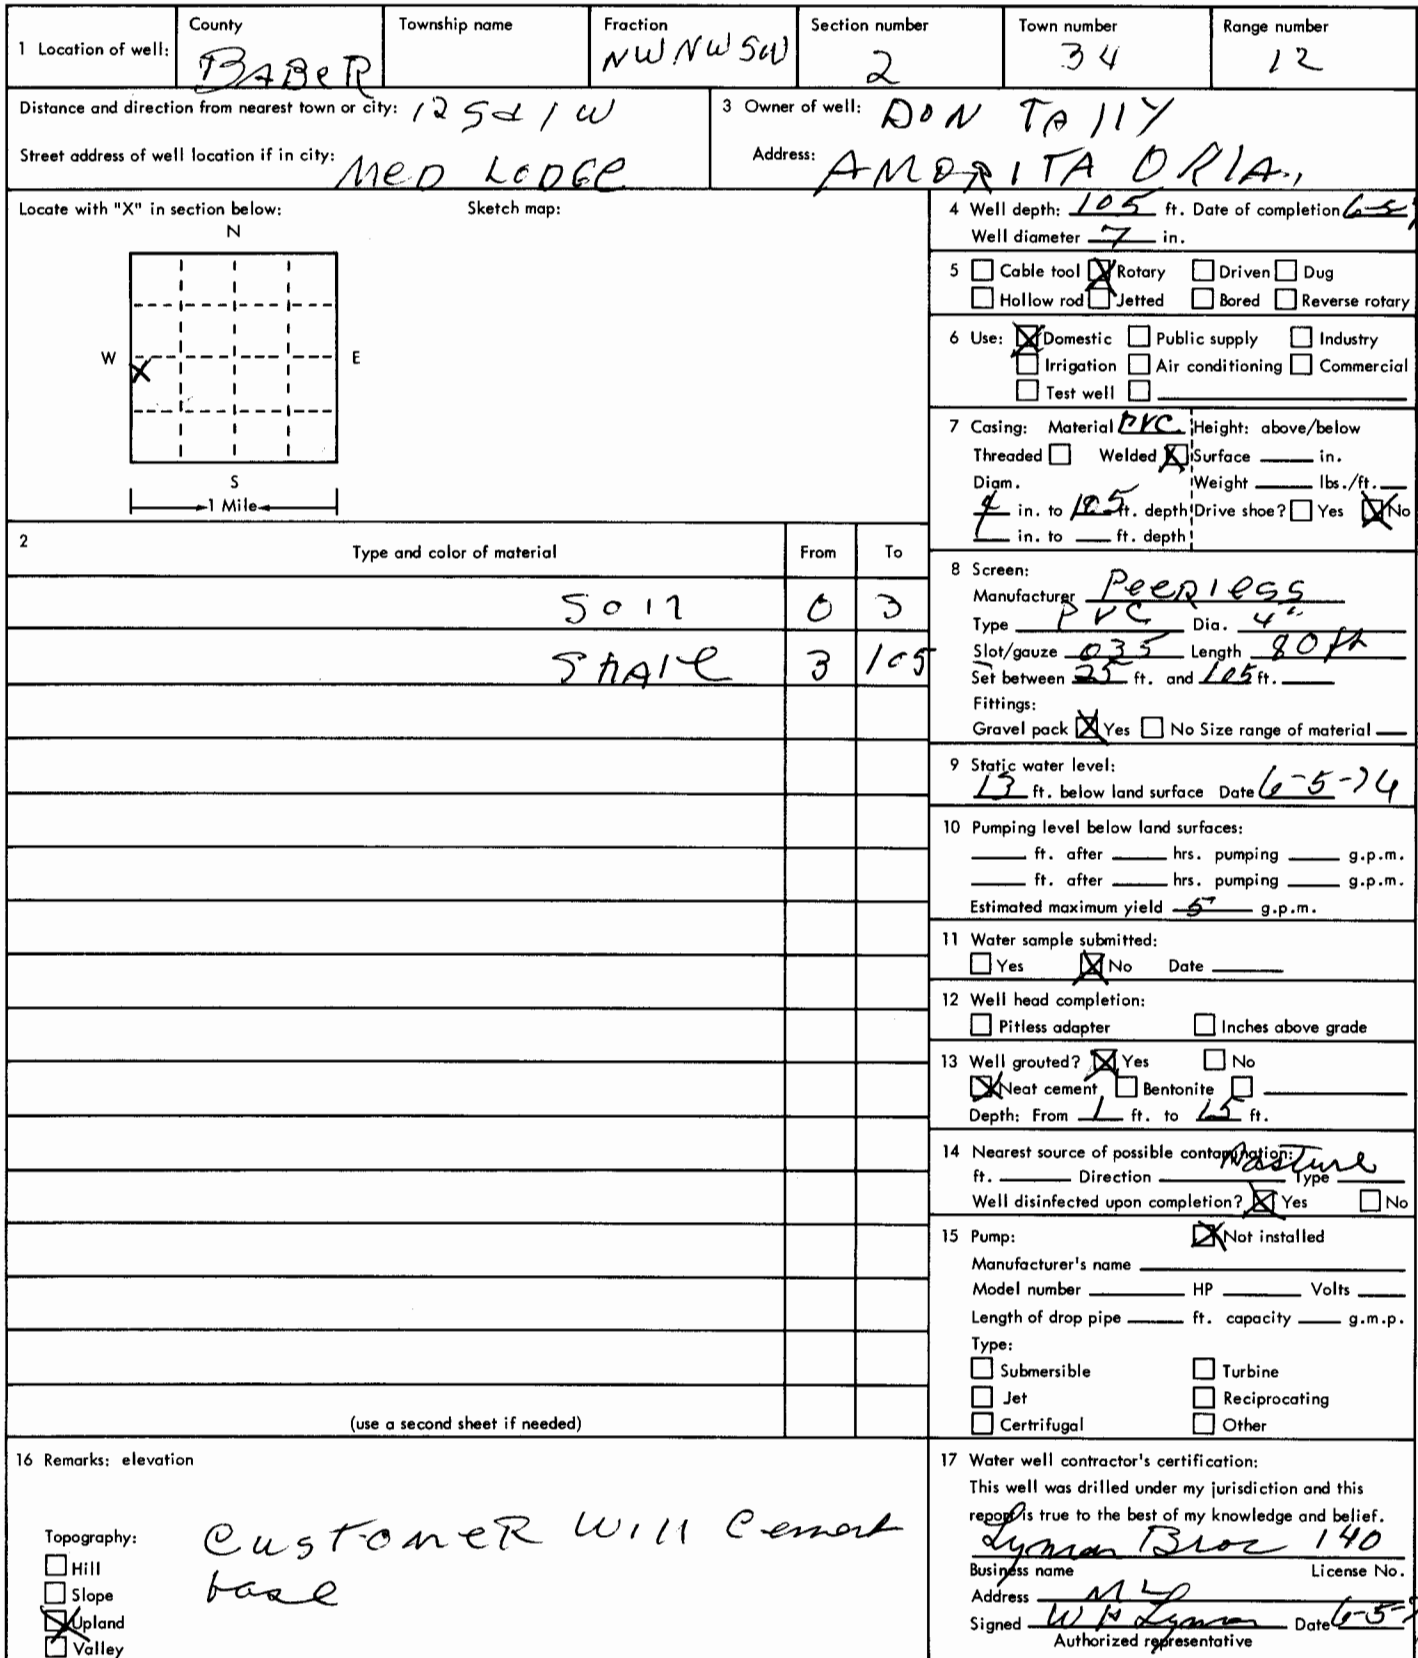 1 Location of well:
County
BABeR
Township name
Fraction
NW NW SW
Section number
2
Town number
34
Range number
12
Distance and direction from nearest town or city: 12 S & 1 W
Street address of well location if in city: MeD LoDGe
3 Owner of well: DON TAlly
Address: AMORITA OKlA.,
Locate with "X" in section below:
Sketch map:
N
W
X
E
S
1 Mile
4 Well depth: 105 ft. Date of completion 6-5
Well diameter 7 in.
5 Cable tool X Rotary Driven Dug
Hollow rod Jetted Bored Reverse rotary
6 Use: X Domestic Public supply Industry
Irrigation Air conditioning Commercial
Test well
7 Casing: Material PVC Height: above/below
Threaded Welded X Surface in.
Diam. Weight lbs./ft.
4 in. to 105 ft. depth Drive shoe? Yes X No
in. to ft. depth
2
Type and color of material From To
Soil 0 3
SHAle 3 105
(use a second sheet if needed)
8 Screen:
Manufacturer PeeRless
Type PVC Dia. 4"
Slot/gauze 035 Length 80 ft
Set between 25 ft. and 105 ft.
Fittings:
Gravel pack X Yes No Size range of material
9 Static water level:
13 ft. below land surface Date 6-5-76
10 Pumping level below land surfaces:
ft. after hrs. pumping g.p.m.
ft. after hrs. pumping g.p.m.
Estimated maximum yield 5 g.p.m.
11 Water sample submitted:
Yes X No Date
12 Well head completion:
Pitless adapter Inches above grade
13 Well grouted? X Yes No
X Neat cement Bentonite
Depth: From 1 ft. to 15 ft.
14 Nearest source of possible contamination: Pasture
ft. Direction Type
Well disinfected upon completion? X Yes No
15 Pump: X Not installed
Manufacturer's name
Model number HP Volts
Length of drop pipe ft. capacity g.m.p.
Type:
Submersible Turbine
Jet Reciprocating
Certrifugal Other
16 Remarks: elevation
Topography:
Hill
Slope
X Upland
Valley
CustomeR Will Cement
base
17 Water well contractor's certification:
This well was drilled under my jurisdiction and this
report is true to the best of my knowledge and belief.
Lyman Bros 140
Business name License No.
Address ML
Signed W H Lyman Date 6-5-
Authorized representative